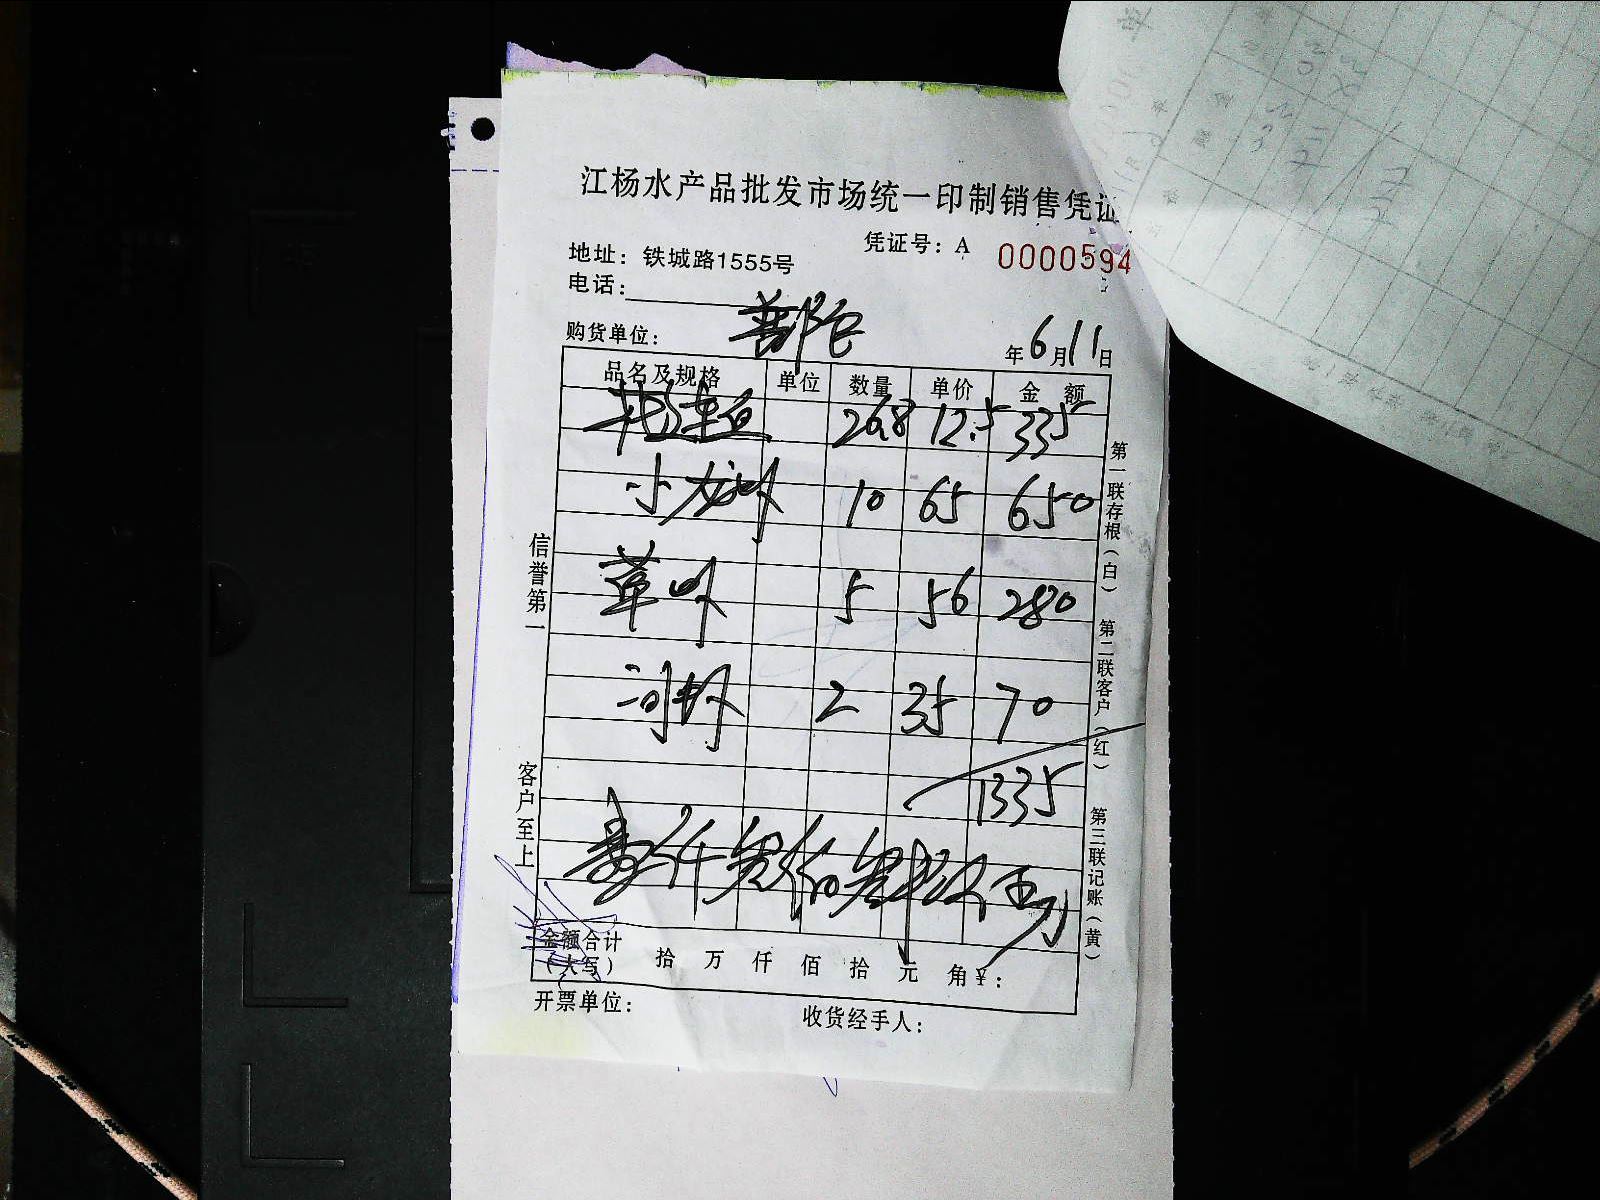 江杨水产品批发市场统一印制销售凭证
凭证号：A 0000594
地址：铁城路1555号
电话：
购货单位：
年6月11日
品名及规格 单位 数量 单价 金额
26.8 12.5 335
小龙虾 10 65 650
草虾 5 56 280
河虾 2 35 70
1335
壹仟叁佰叁拾伍元
金额合计（大写） 拾 万 仟 佰 拾 元 角 ¥：
开票单位： 收货经手人：
信誉第一
客户至上
第一联存根（白）
第二联客户（红）
第三联记账（黄）